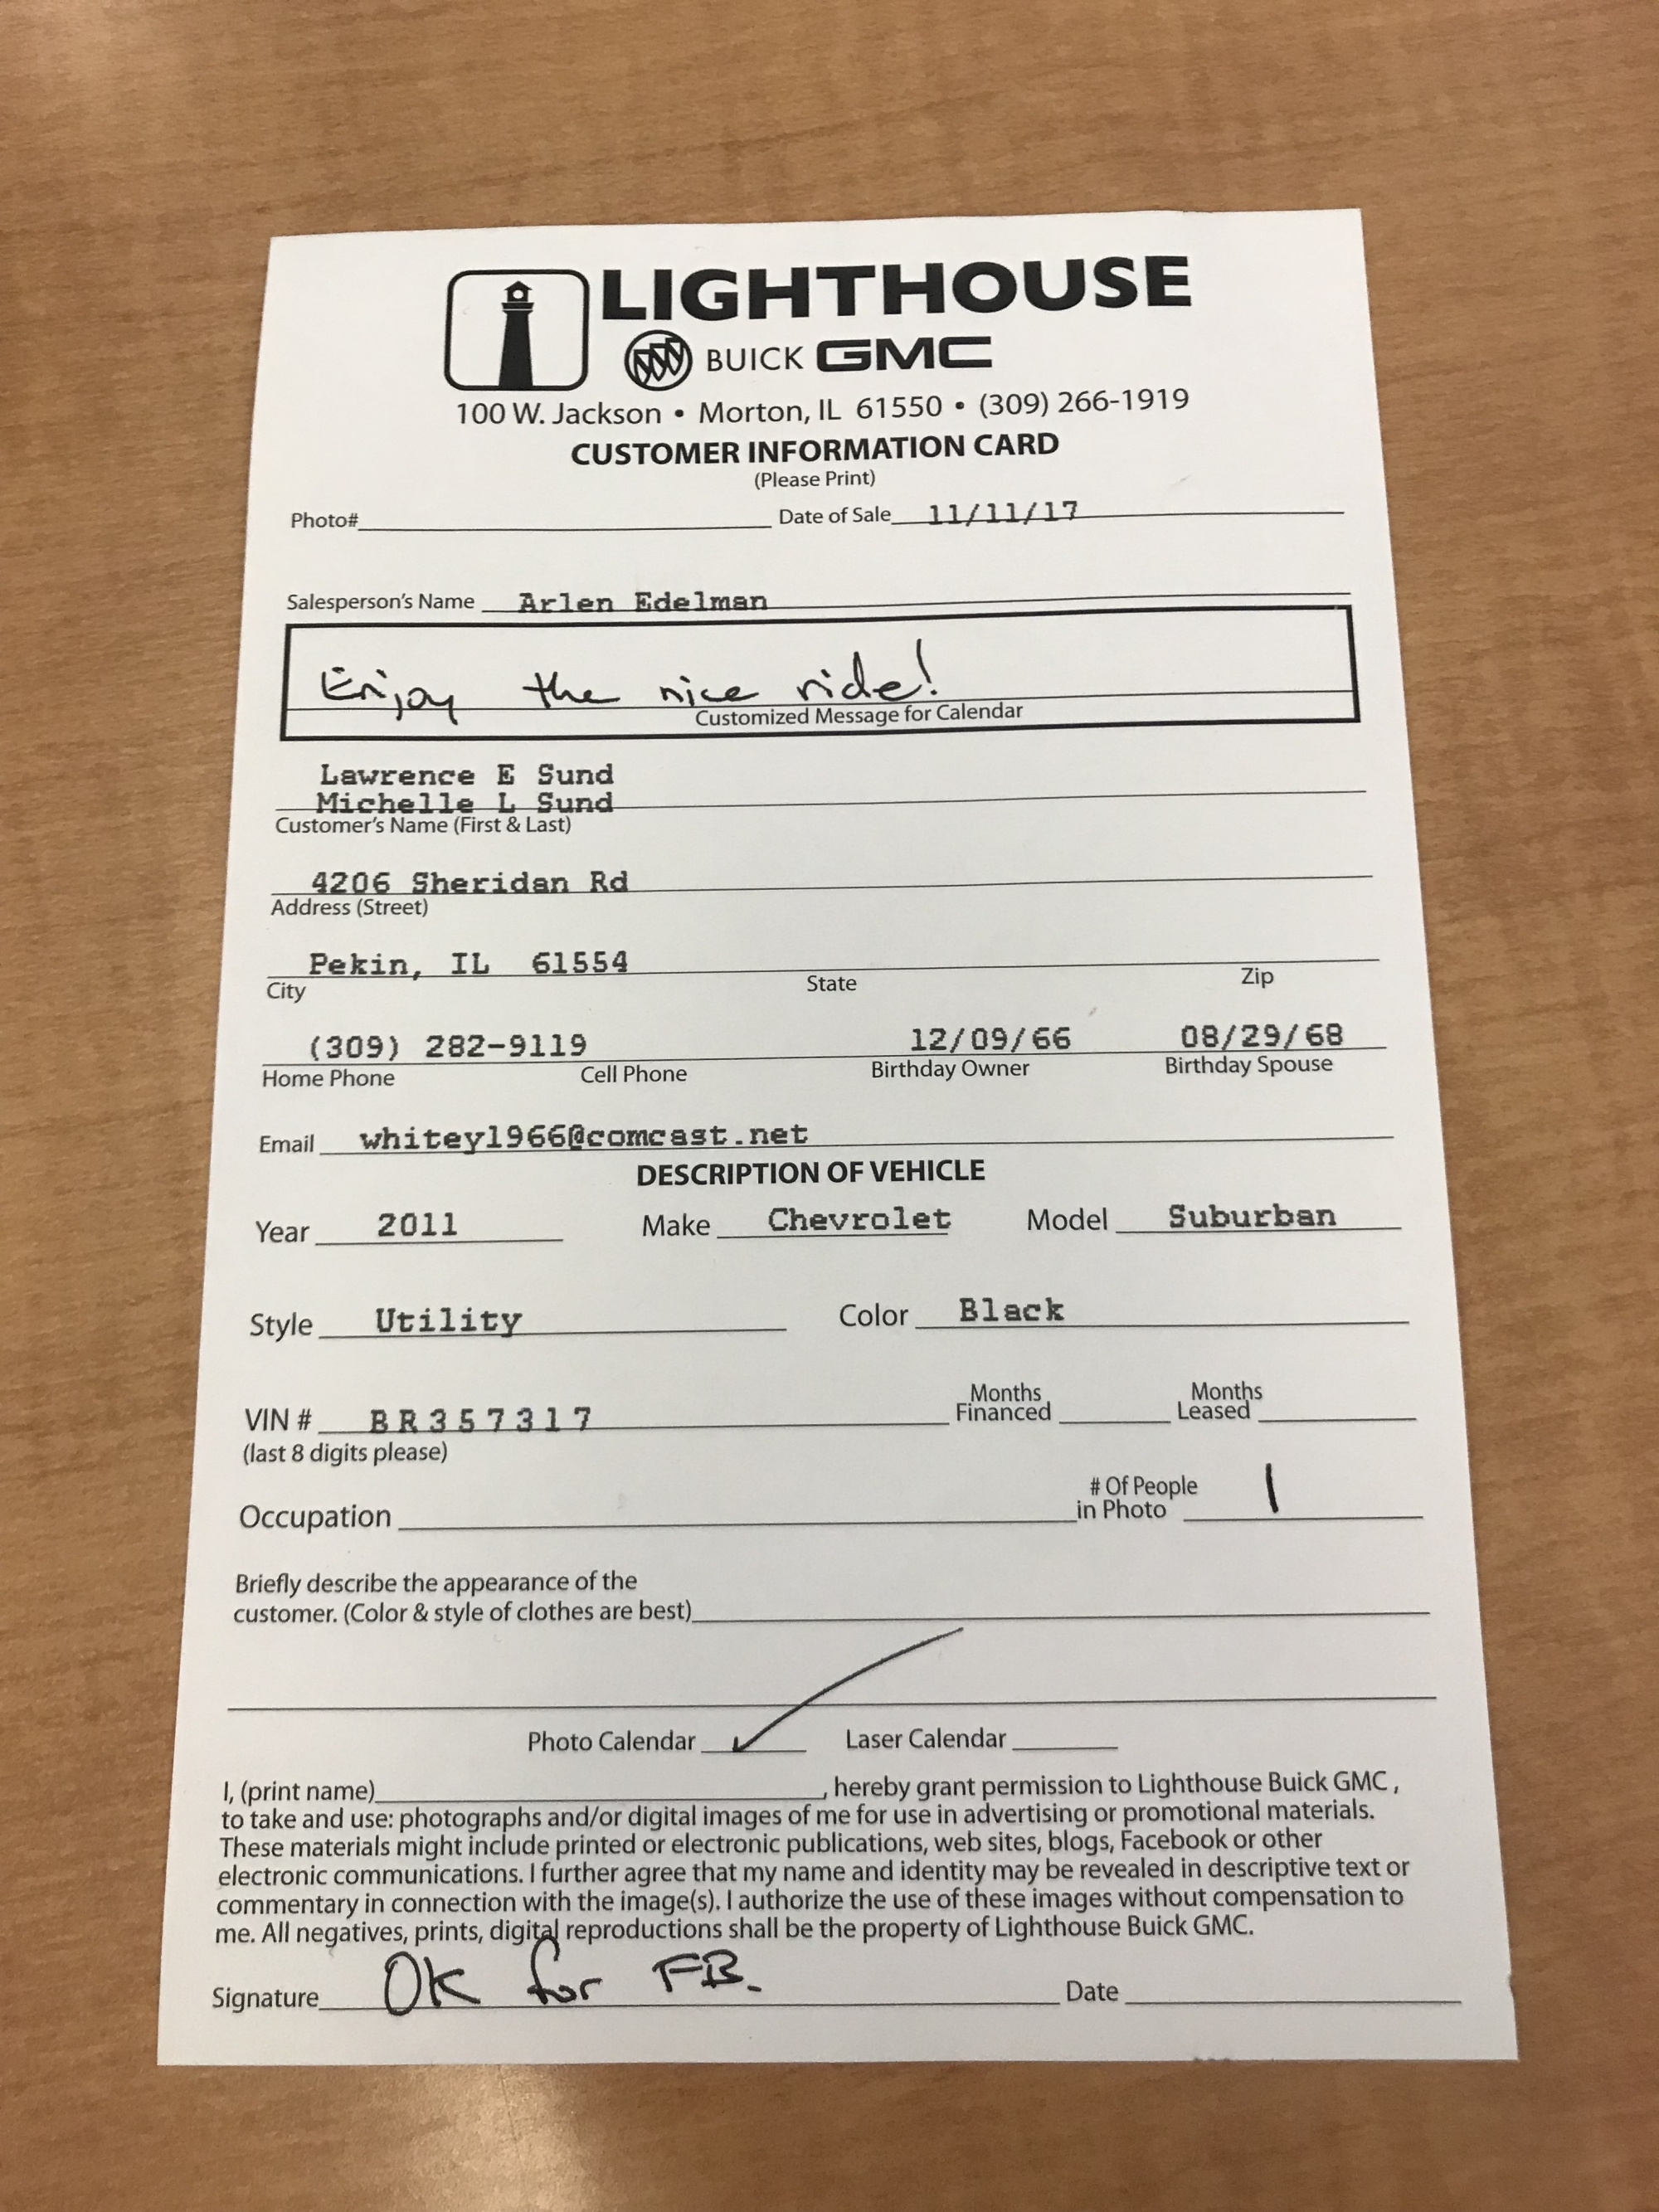 LIGHTHOUSE
BUICK GMC
100 W. Jackson • Morton, IL 61550 • (309) 266-1919
CUSTOMER INFORMATION CARD
(Please Print)
Photo# Date of Sale 11/11/17
Salesperson's Name Arlen Edelman
Enjoy the nice ride!
Customized Message for Calendar
Lawrence E Sund
Michelle L Sund
Customer's Name (First & Last)
4206 Sheridan Rd
Address (Street)
Pekin, IL 61554
City State Zip
(309) 282-9119 12/09/66 08/29/68
Home Phone Cell Phone Birthday Owner Birthday Spouse
Email whitey1966@comcast.net
DESCRIPTION OF VEHICLE
Year 2011 Make Chevrolet Model Suburban
Style Utility Color Black
VIN # BR357317 Months Financed Months Leased
(last 8 digits please)
Occupation # Of People in Photo 1
Briefly describe the appearance of the
customer. (Color & style of clothes are best)
Photo Calendar ✓ Laser Calendar
I, (print name) , hereby grant permission to Lighthouse Buick GMC ,
to take and use: photographs and/or digital images of me for use in advertising or promotional materials.
These materials might include printed or electronic publications, web sites, blogs, Facebook or other
electronic communications. I further agree that my name and identity may be revealed in descriptive text or
commentary in connection with the image(s). I authorize the use of these images without compensation to
me. All negatives, prints, digital reproductions shall be the property of Lighthouse Buick GMC.
Signature OK for FB. Date